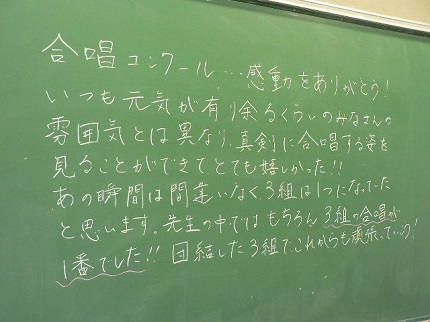 合唱コンクール…感動をありがとう!
いつも元気が有り余るくらいのみなさんの
雰囲気とは異なり、真剣に合唱する姿を
見ることができてとても嬉しかった!!
あの瞬間は間違いなく3組は1つになっていた
と思います。先生の中では、もちろん3組の合唱が
1番でした!! 団結した3組で、これからも頑張っていこう!